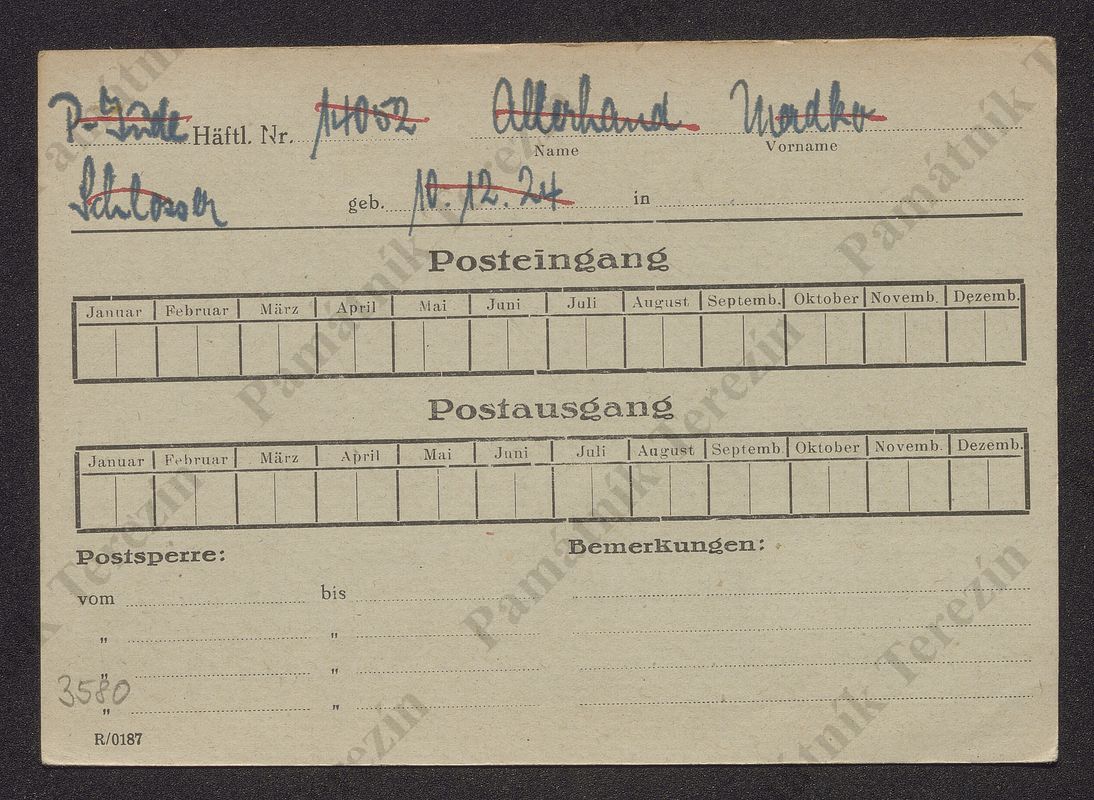 P-Jude Häftl. Nr. 14052 Allerhand Mordko
Name Vorname
Schlosser geb. 10.12.24 in
Posteingang
Januar Februar März April Mai Juni Juli August Septemb. Oktober Novemb. Dezemb.
Postausgang
Januar Februar März April Mai Juni Juli August Septemb. Oktober Novemb. Dezemb.
Postsperre: Bemerkungen:
vom bis
" "
" "
3580
" "
R/0187
Památník Terezín